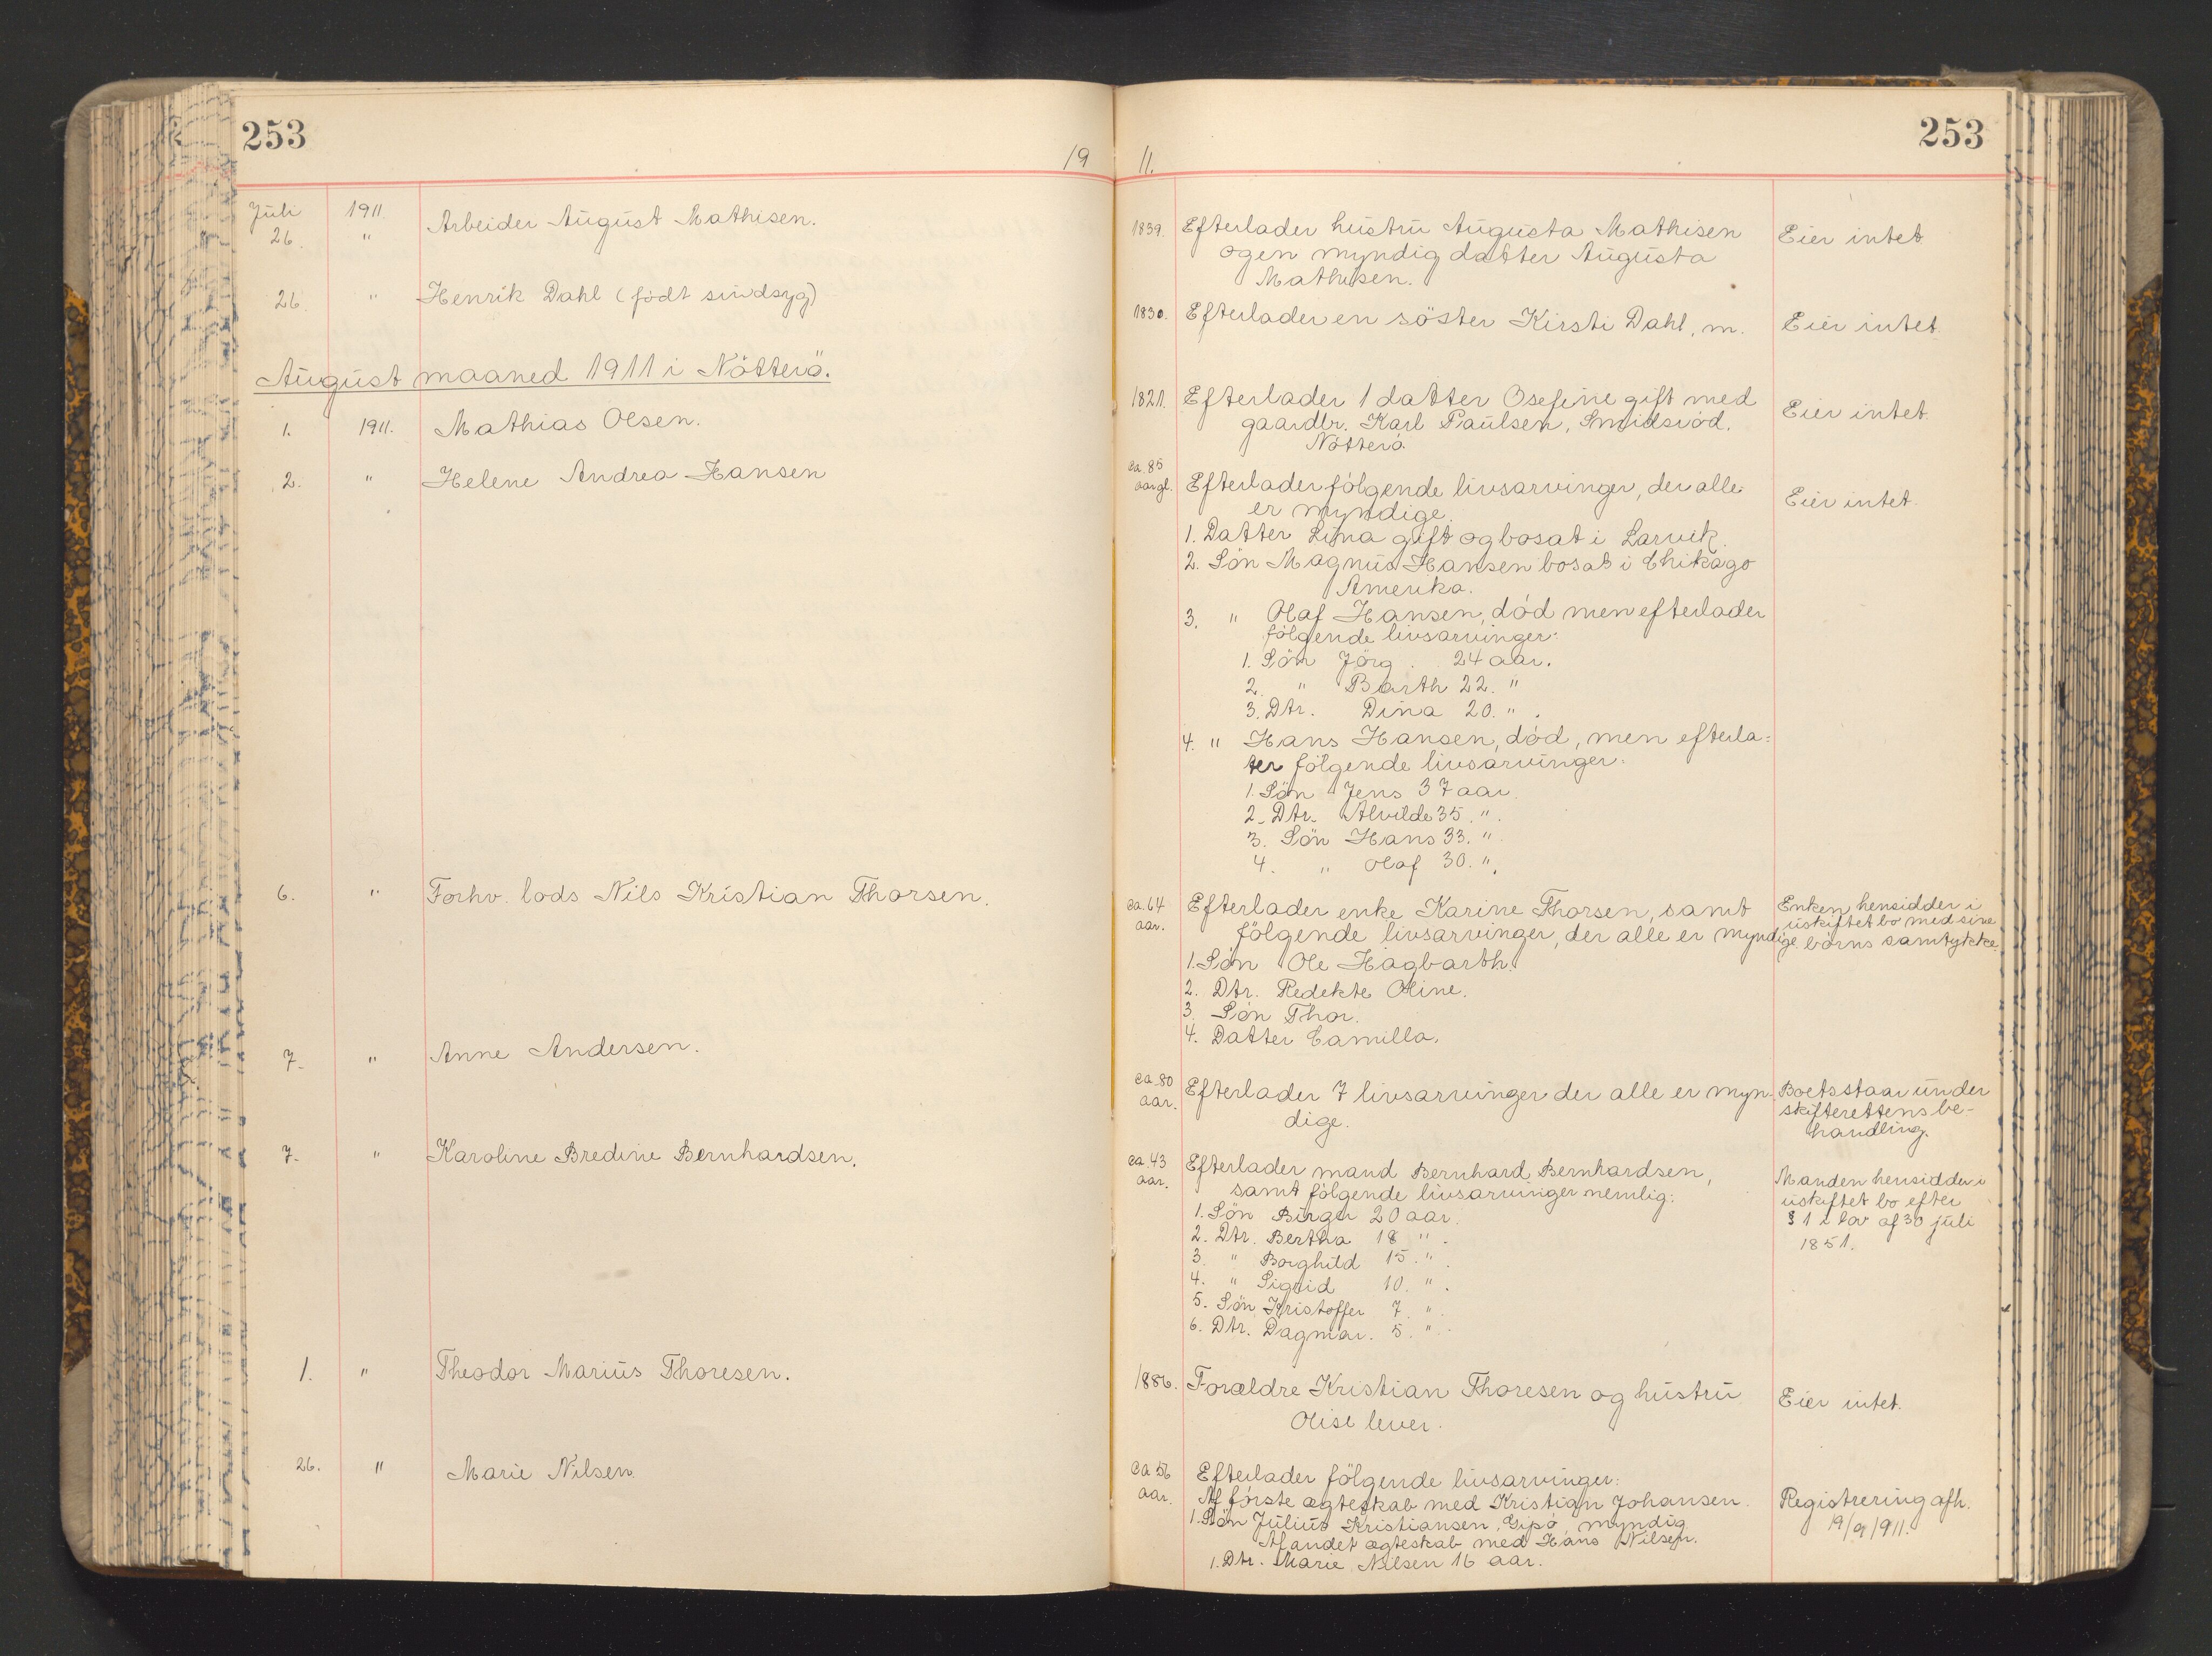 253
19
11.
253
Juli 1911 Arbeider August Mathisen.
26. "
1839. Efterlader hustru Augusta Mathisen
ogen myndig datter Augusta
Mathisen.
Eier intet
26 " Henrik Dahl (födt sindsyg)
1830. Efterlader en söster Kirsti Dahl, m. Eier intet.
August maaned 1911 i Nötterö.
1. 1911. Mathias Olsen.
1821. Efterlader 1 datter Osefine gift med
gaardbr. Karl Paulsen, Smidsröd.
Nötterö.
Eier intet.
2. " Helene Andrea Hansen
ca. 85
aar gl. Efterlader fölgende livsarvinger, der alle
er myndige.
Eier intet.
1. Datter Lina gift og bosat i Larvik.
2. Sön Magnus Hansen bosat i Chikago
Amerika.
3. " Olaf Hansen, död men efterlader
fölgende livsarvinger:
1. Sön Jörg. 24 aar.
2. " Barth 22. "
3. Dtr. Dina 20. ".
4. " Hans Hansen, död, men efterla=
ter fölgende livsarvinger:
1. Sön Jens 37 aar.
2. Dtr. Alvilde 35. ".
3. Sön Hans 33. "
4. " Olaf 30. ".
6. " Forhv. lods Nils Kristian Thorsen.
ca. 64
aar. Efterlader enke Karine Thorsen, samt
fölgende livsarvinger, der alle er myndige
1. Sön Ole Hagbarth.
2. Dtr. Redekte Oline.
3. Sön Thor.
4. Datter Camilla.
Enken hensidder i
uskiftet bo med sine
börns samtykke.
7. " Anne Andersen.
ca. 80
aar. Efterlader 7 livsarvinger der alle er myn-
dige.
Boets staar under
skifterettens be-
handling.
7. " Karoline Bredine Bernhardsen.
ca. 43
aar. Efterlader mand Bernhard Bernhardsen,
samt fölgende livsarvinger nemlig:
1. Sön Birger 20 aar.
2. Dtr. Bertha 18 ".
3. " Borghild 15. ".
4. " Sigrid 10. ".
5. Sön Kristoffer 7. ".
6. Dtr. Dagmar. 5. "
Manden hensidder i
uskiftet bo efter
§ 1 i lov af 30 juli
1851.
1. " Theodor Marius Thoresen.
1886. Forældre Kristian Thoresen og hustru
Olise lever.
Eier intet.
26. " Marie Nilsen
Ca 56
aar. Efterlader fölgende livsarvinger:
Af förste ægteskab med Kristian Johansen.
1. Sön Julius Kristiansen, Gipö, myndig
Af andet ægteskab med Hans Nilsen.
1. Dtr. Marie Nilsen 16 aar.
Registrering afh.
19/9 1911.